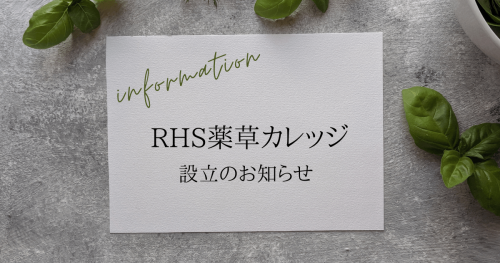 information
RHS薬草カレッジ
設立のお知らせ